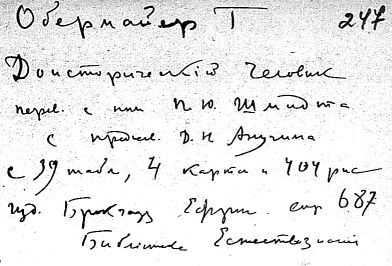 Обермайер Г 247
Доисторический человек
перев. с нем П. Ю. Шмидта
с предисл. Д. Н Анучина
с 39 табл, 4 карта и 404 рис
изд. Брокгауз Ефрон. стр 687
Библиотека Естествознания